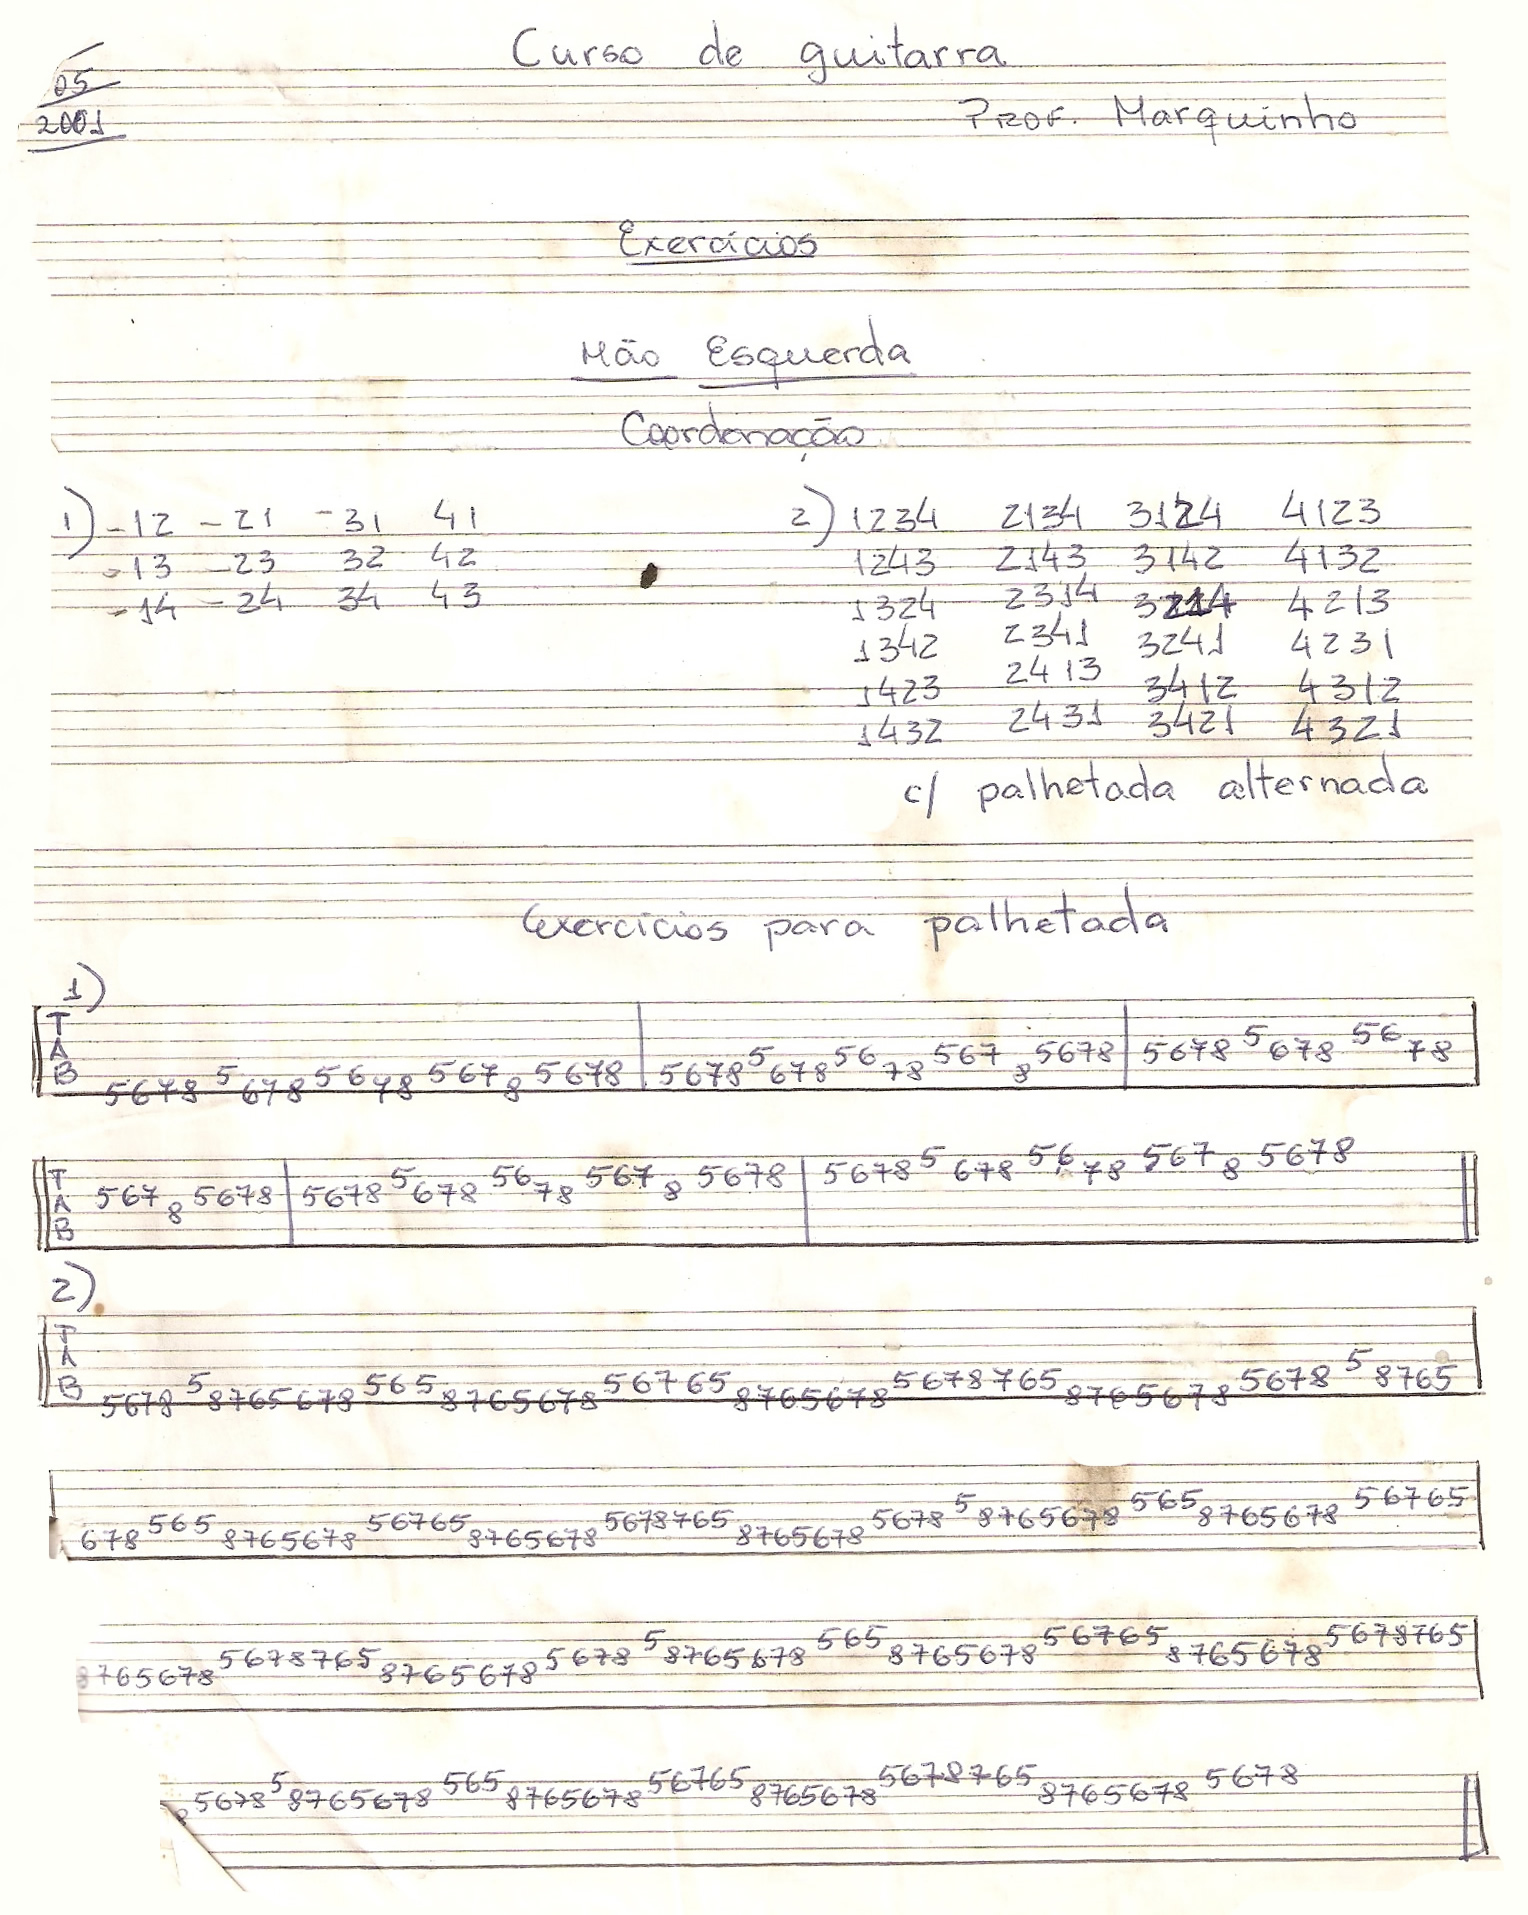 Curso de guitarra
05
2001
Prof. Marquinho
Exercícios
Mão Esquerda
Coordenação
1) -12 -21 -31 41
-13 -23 32 42
-14 -24 34 43
2) 1234 2134 3124 4123
1243 2143 3142 4132
1324 2314 3214 4213
1342 2341 3241 4231
1423 2413 3412 4312
1432 2431 3421 4321
c/ palhetada alternada
Exercícios para palhetada
1)
TAB 5678 5 678 56 78 567 8 5678 | 5678 5 678 56 78 567 8 5678 | 5678 5 678 56 78
TAB 567 8 5678 | 5678 5 678 56 78 567 8 5678 | 5678 5 678 56 78 567 8 5678
2)
TAB 5678 5 8765678 565 8765678 56765 8765678 5678765 8765678 5678 5 8765
678 565 8765678 56765 8765678 5678765 8765678 5678 5 8765678 565 8765678 56765
8765678 5678765 8765678 5678 5 8765678 565 8765678 56765 8765678 5678765
8 5678 5 8765678 565 8765678 56765 8765678 5678765 8765678 5678